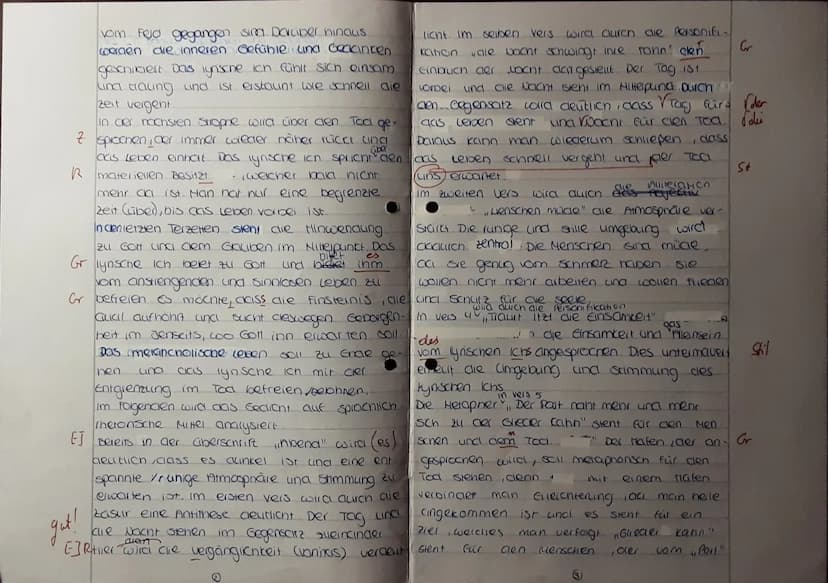 vom Feld gegangen sind Darüber hinaus
werden die inneren Gefühle und Gedanken
geschildert Das lyrische Ich fühlt sich einsam
und traurig und ist erstaunt wie schnell die
Zeit vergeht
In der nächsten Strophe wird über den Tod ge-
Z
sprochen, der immer wieder näher rückt und
das Leben einholt Das lyrische Ich spricht über den
R
materiellen Besitzt, welcher bald nicht
mehr da ist Man hat nur eine begrenzte
Zeit (übel), bis das Leben vorbei ist
In den letzten Terzeten steht die Hinwendung
zu Gott und dem Glauben im Mittelpunkt Das
Gr
lyrische Ich betet zu Gott und bittet es ihm
vom anstrengenden und sinnlosen Leben zu
Gr
befreien Es möchte, dass die Finsternis, die
Qual aufhört und sucht deswegen Geborgen-
heit im Jenseits, wo Gott ihn erwarten soll
Das melancholische Leben soll zu Ende ge-
hen und das lyrische Ich mit der
Entgrenzung im Tod befreien/belohnen.
Im folgenden wird das Gedicht auf sprachlich
rhetorische Mittel analysiert
E]
Bereits in der Überschrift „Abend" wird (es)
deutlich, dass es dunkel ist und eine ent
spannte /ruhige Atmosphäre und Stimmung zu
erwarten ist. Im ersten Vers wird durch die
Zäsur eine Antithese deutlich Der Tag und
gut!
die Nacht stehen im Gegensatz zueinander
E]R
Hier wird die vergänglichkeit (vanitas) verdeut
2
licht Im selben Vers wird durch die Personifi-
kation „die Nacht schwingt ihre Fahn" den
Gr
Einbruch der Nacht dargestellt Der Tag ist
vorbei und die Nacht steht im Mittelpunkt Durch
den Gegensatz wird deutlich, dass Tag für
der
das Leben steht und Nacht für den Tod
die
Daraus kann man wiederum schließen, dass
das Leben schnell vergeht und der Tod
St
uns erwartet
Im zweiten Vers wird durch die
„Menschen müde" die Atmosphäre ver-
stärkt Die ruhige und stille Umgebung wird
dadurch zentral Die Menschen sind müde
da sie genug vom Schmerz haben Sie
wollen nicht mehr arbeiten und wollen Frieden
und Schutz für die Seele
wird durch die Personifikation
In Vers 4 „Trauft itzt die Einsamkeit"
die Einsamkeit und das Alleinsein
des
vom lyrischen Ichs angesprochen Dies untermauert
Stil
erneut die Umgebung und Stimmung des
lyrischen Ichs
in Vers 5
Die Metapher „Der Port naht mehr und mehr
sich zu der Glieder Kahn" steht für den Men
schen und dem Tod Der Hafen, der an-
Gr
gesprochen wird, soll metaphorisch für den
Tod stehen, denn mit einem Hafen
verbindet man Erleichterung, da man heile
angekommen ist und es steht für ein
Ziel, welches man verfolgt „Glieder Kahn"
steht für den Menschen, der vom „Port"
3